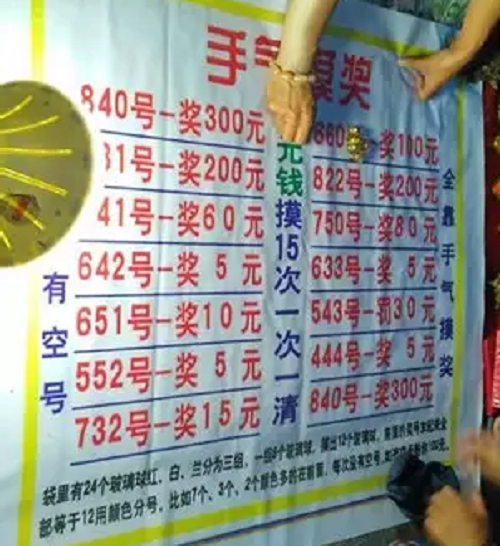 手气摸奖
840号-奖300元
31号-奖200元
41号-奖60元
642号-奖 5 元
651号-奖10元
552号-奖 5 元
732号-奖15元
有空号
元钱摸15次一次一清
660 奖100元
822号-奖200元
750号-奖80元
633号-奖 5元
543号-罚30元
444号-奖 5元
840号-奖300元
全靠手气摸奖
袋里有24个玻璃球红、白、兰分为三组，一组8个玻璃球，摸出12个玻璃球，
部等于12用颜色分号，比如7个、3个、2个颜色多的在前面，每次没有空号，